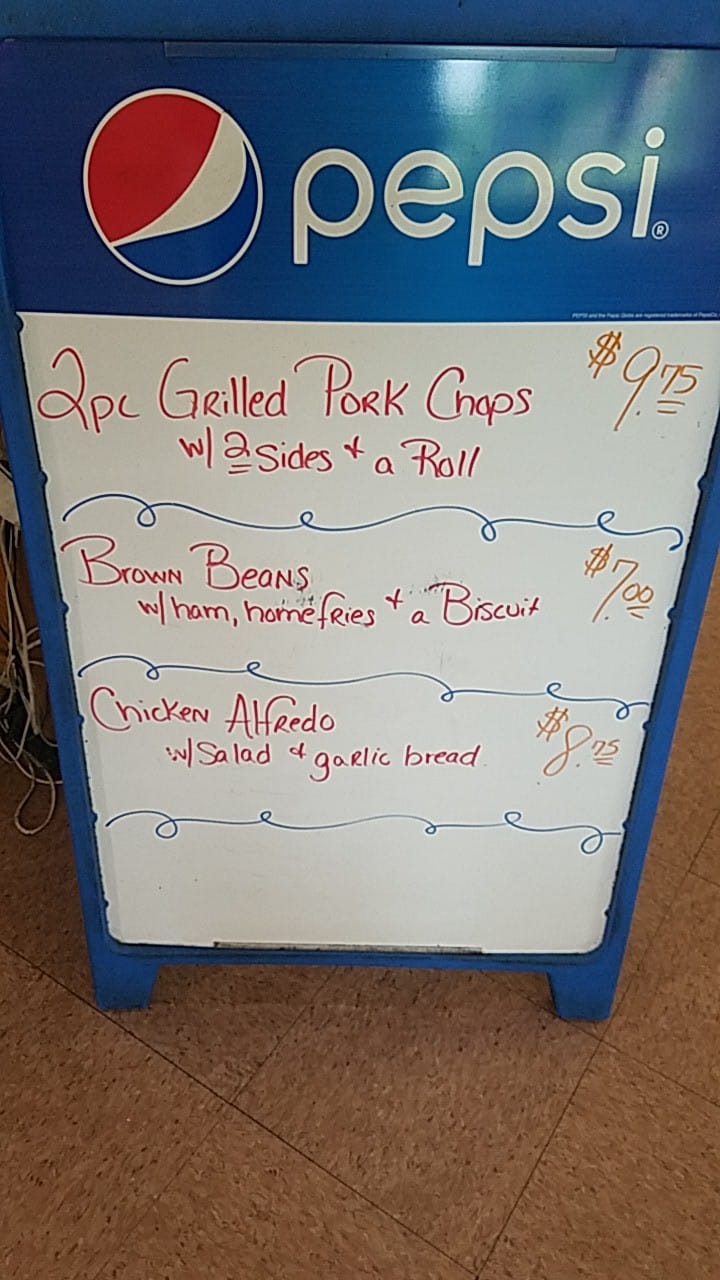 pepsi®
PEPSI and the Pepsi Globe are registered trademarks of PepsiCo
2pc Grilled Pork Chops $9.75
w/ 2 Sides + a Roll
Brown Beans $7.00
w/ham, homefries + a Biscuit
Chicken Alfredo $8.75
w/Salad + garlic bread